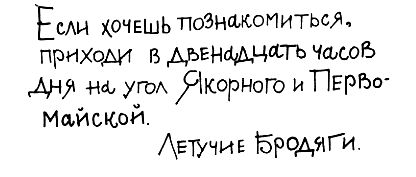 Если хочешь познакомиться,
приходи в двенадцать часов
дня на угол Якорного и Перво-
майской.
Летучие Бродяги.